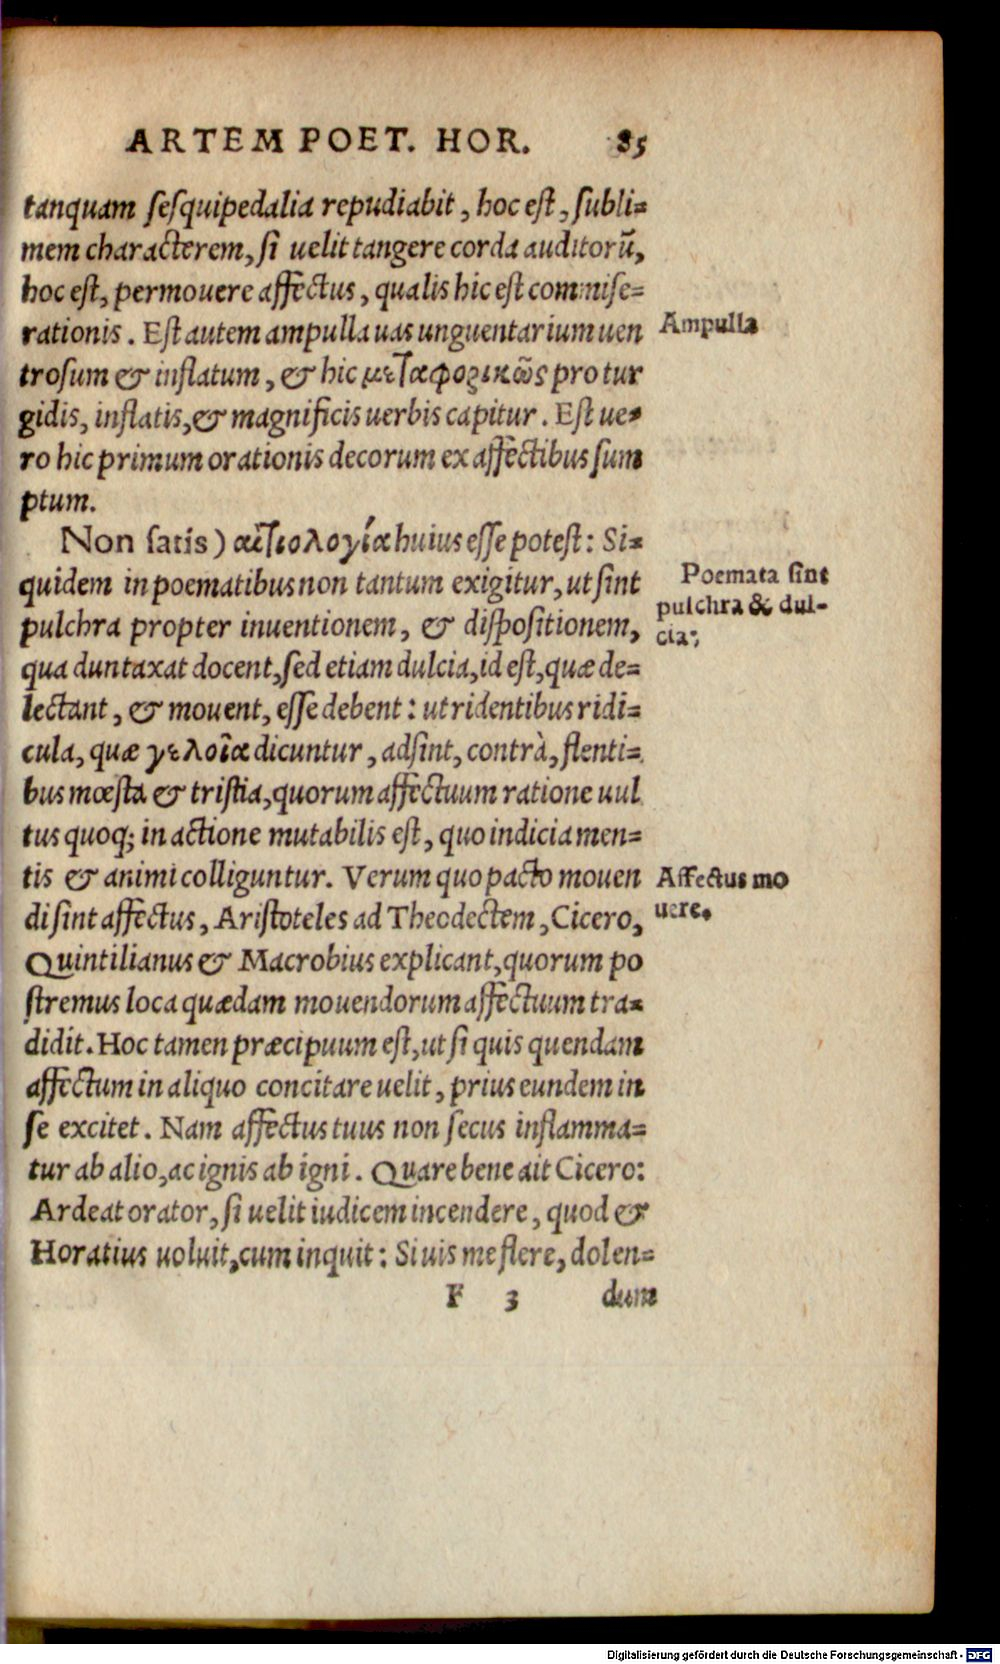 ARTEM POET. HOR. 85
tanquam sesquipedalia repudiabit, hoc est, subli=
mem characterem, si uelit tangere corda auditorũ,
hoc est, permouere affectus, qualis hic est commise=
rationis. Est autem ampulla uas unguentarium uen
Ampulla
trosum & inflatum, & hic μεταφορικῶς pro tur
gidis, inflatis, & magnificis uerbis capitur. Est ue=
ro hic primum orationis decorum ex affectibus sum
ptum.
Non satis) αἰτιολογία huius esse potest: Si=
quidem in poematibus non tantum exigitur, ut sint
Poemata sint
pulchra & dul-
cia:
pulchra propter inuentionem, & dispositionem,
qua duntaxat docent, sed etiam dulcia, id est, quæ de=
lectant, & mouent, esse debent: ut ridentibus ridi=
cula, quæ γελοῖα dicuntur, adsint, contrà, flenti=
bus mœsta & tristia, quorum affectuum ratione uul
tus quoq; in actione mutabilis est, quo indicia men=
tis & animi colliguntur. Verum quo pacto mouen
Affectus mo
uere.
di sint affectus, Aristoteles ad Theodectem, Cicero,
Quintilianus & Macrobius explicant, quorum po
stremus loca quædam mouendorum affectuum tra=
didit. Hoc tamen præcipuum est, ut si quis quendam
affectum in aliquo concitare uelit, prius eundem in
se excitet. Nam affectus tuus non secus inflamma=
tur ab alio, ac ignis ab igni. Quare bene ait Cicero:
Ardeat orator, si uelit iudicem incendere, quod &
Horatius uoluit, cum inquit: Si uis me flere, dolen=
F 3 dum
Digitalisierung gefördert durch die Deutsche Forschungsgemeinschaft - DFG